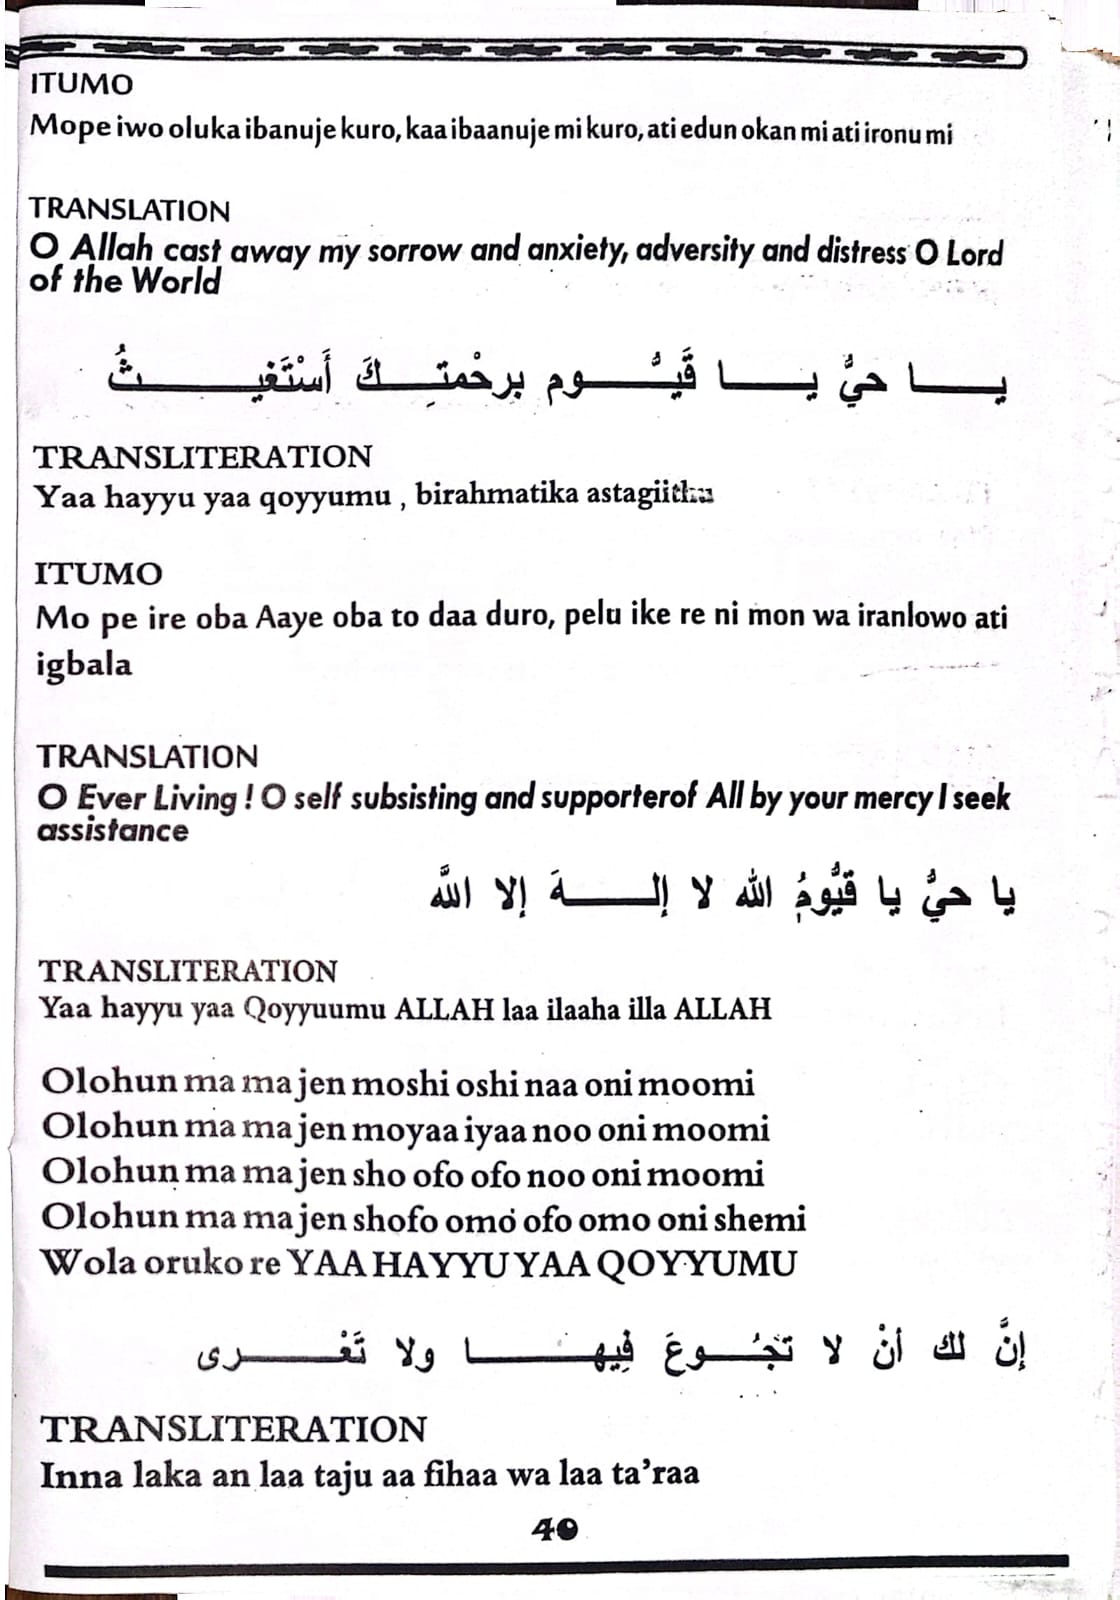 ITUMO
Mope iwo oluka ibanuje kuro, kaa ibaanuje mi kuro, ati edun okan mi ati ironu mi
TRANSLATION
O Allah cast away my sorrow and anxiety, adversity and distress O Lord
of the World
يـــا حيُّ يـــا قَيُّـــوم برحْمتِـــكَ أَسْتَغيـــثُ
TRANSLITERATION
Yaa hayyu yaa qoyyumu , birahmatika astagiithu
ITUMO
Mo pe ire oba Aaye oba to daa duro, pelu ike re ni mon wa iranlowo ati
igbala
TRANSLATION
O Ever Living ! O self subsisting and supporterof All by your mercy I seek
assistance
يا حيُّ يا قيُّومُ الله لا إلـــهَ إلا اللَّه
TRANSLITERATION
Yaa hayyu yaa Qoyyuumu ALLAH laa ilaaha illa ALLAH
Olohun ma ma jen moshi oshi naa oni moomi
Olohun ma ma jen moyaa iyaa noo oni moomi
Olohun ma ma jen sho ofo ofo noo oni moomi
Olohun ma ma jen shofo omo ofo omo oni shemi
Wola oruko re YAA HAYYU YAA QOYYUMU
إنَّ لك أنْ لا تجُـــوعَ فِيهـــا ولا تَعْـــرى
TRANSLITERATION
Inna laka an laa taju aa fihaa wa laa ta'raa
40